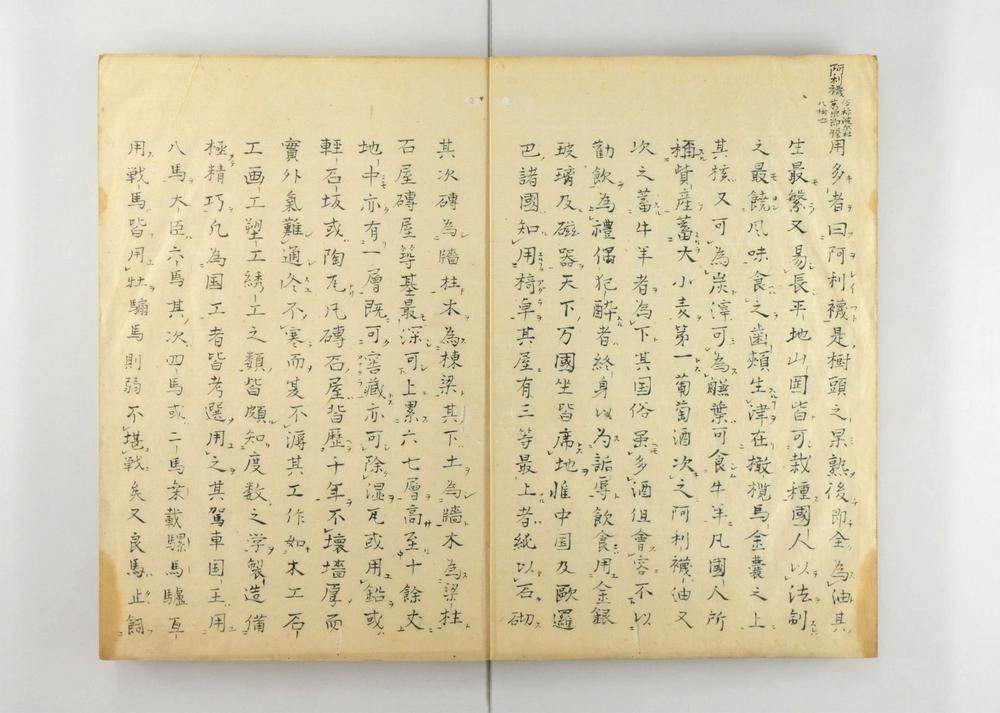 阿利襪
用多者曰阿利襪是樹頭之果熟後即全為油其
生最繁又易長平地山岡皆可栽種國人以法制
之最饒風味食之齒頰生津在橄欖馬金囊之上
其核又可為炭滓可為葉可食牛羊凡國人所
稱貲產蓄大小麦第一葡萄酒次之阿利襪油又
次之蓄牛羊者為下其国俗虽多酒但會客不以
勸飲為禮偶犯醉者終身以為詬辱飲食用金銀
玻璃及磁器天下万國坐皆席地惟中国及歐邏
巴諸國知用椅卓其屋有三等最上者純以石砌
其次磚為牆柱木為棟梁其下土為牆木為梁柱
石屋磚屋築基最深可上累六七層高至十餘丈
地中亦有一層既可窖藏亦可除湿瓦或用鉛或
輕石坂或陶瓦凡磚石屋皆歷千年不壞墻厚而
實外氣難通冬不寒而夏不溽其工作如木工石
工画工塑工綉工之類皆頗知度数之学製造備
極精巧凡為国工者皆考選用之其駕車国王用
八馬大臣六馬其次四馬或二馬乗載騾馬驢互
用戦馬皆用牡騸馬則弱不堪戦矣又良馬止飼